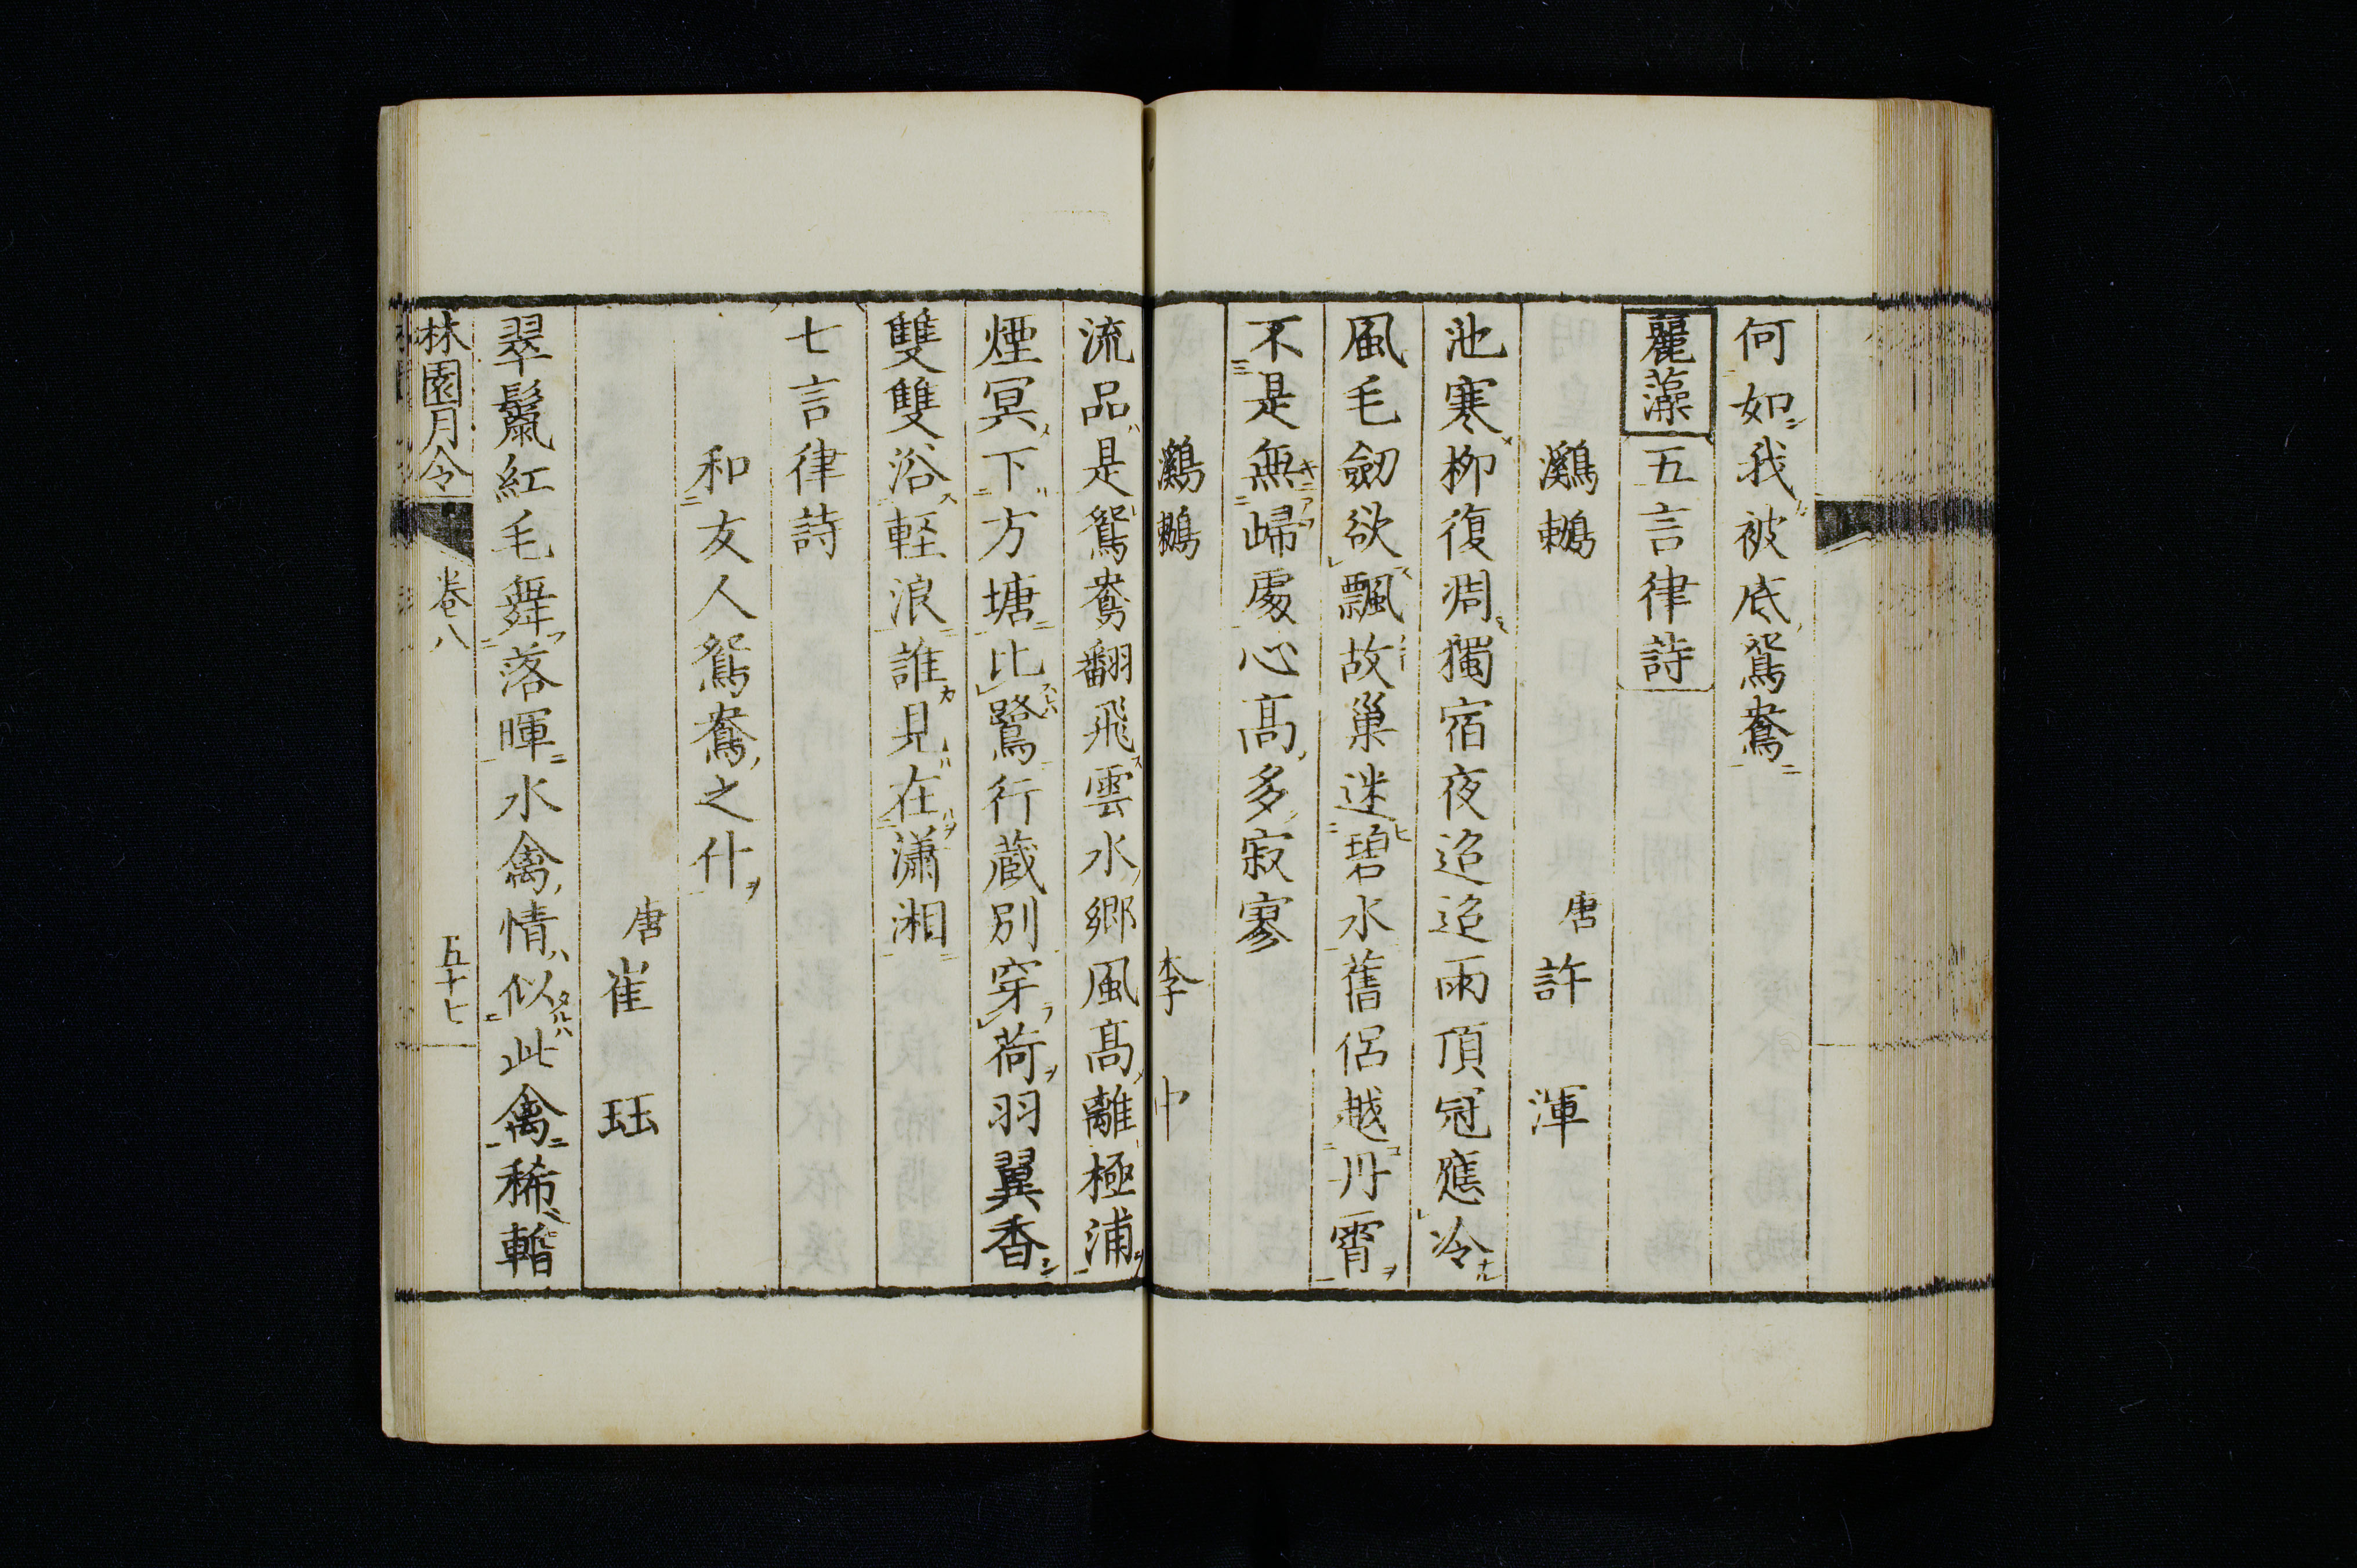 何如我被底鴛鴦
麗藻 五言律詩
鸂鶒
唐 許渾
池寒柳復凋獨宿夜迢迢雨頂冠應冷
風毛劒欲飄故巢迷碧水舊侶越丹霄
不是無歸處心高多寂寥
鸂鶒 李中
流品是鴛鴦翻飛雲水鄉風高離極浦
煙冥下方塘比鷺行藏別穿荷羽翼香
雙雙浴輕浪誰見在瀟湘
七言律詩
和友人鴛鴦之什
唐 崔珏
翠鬣紅毛舞落暉水禽情似此禽稀暫
林園月令 卷八 五十七